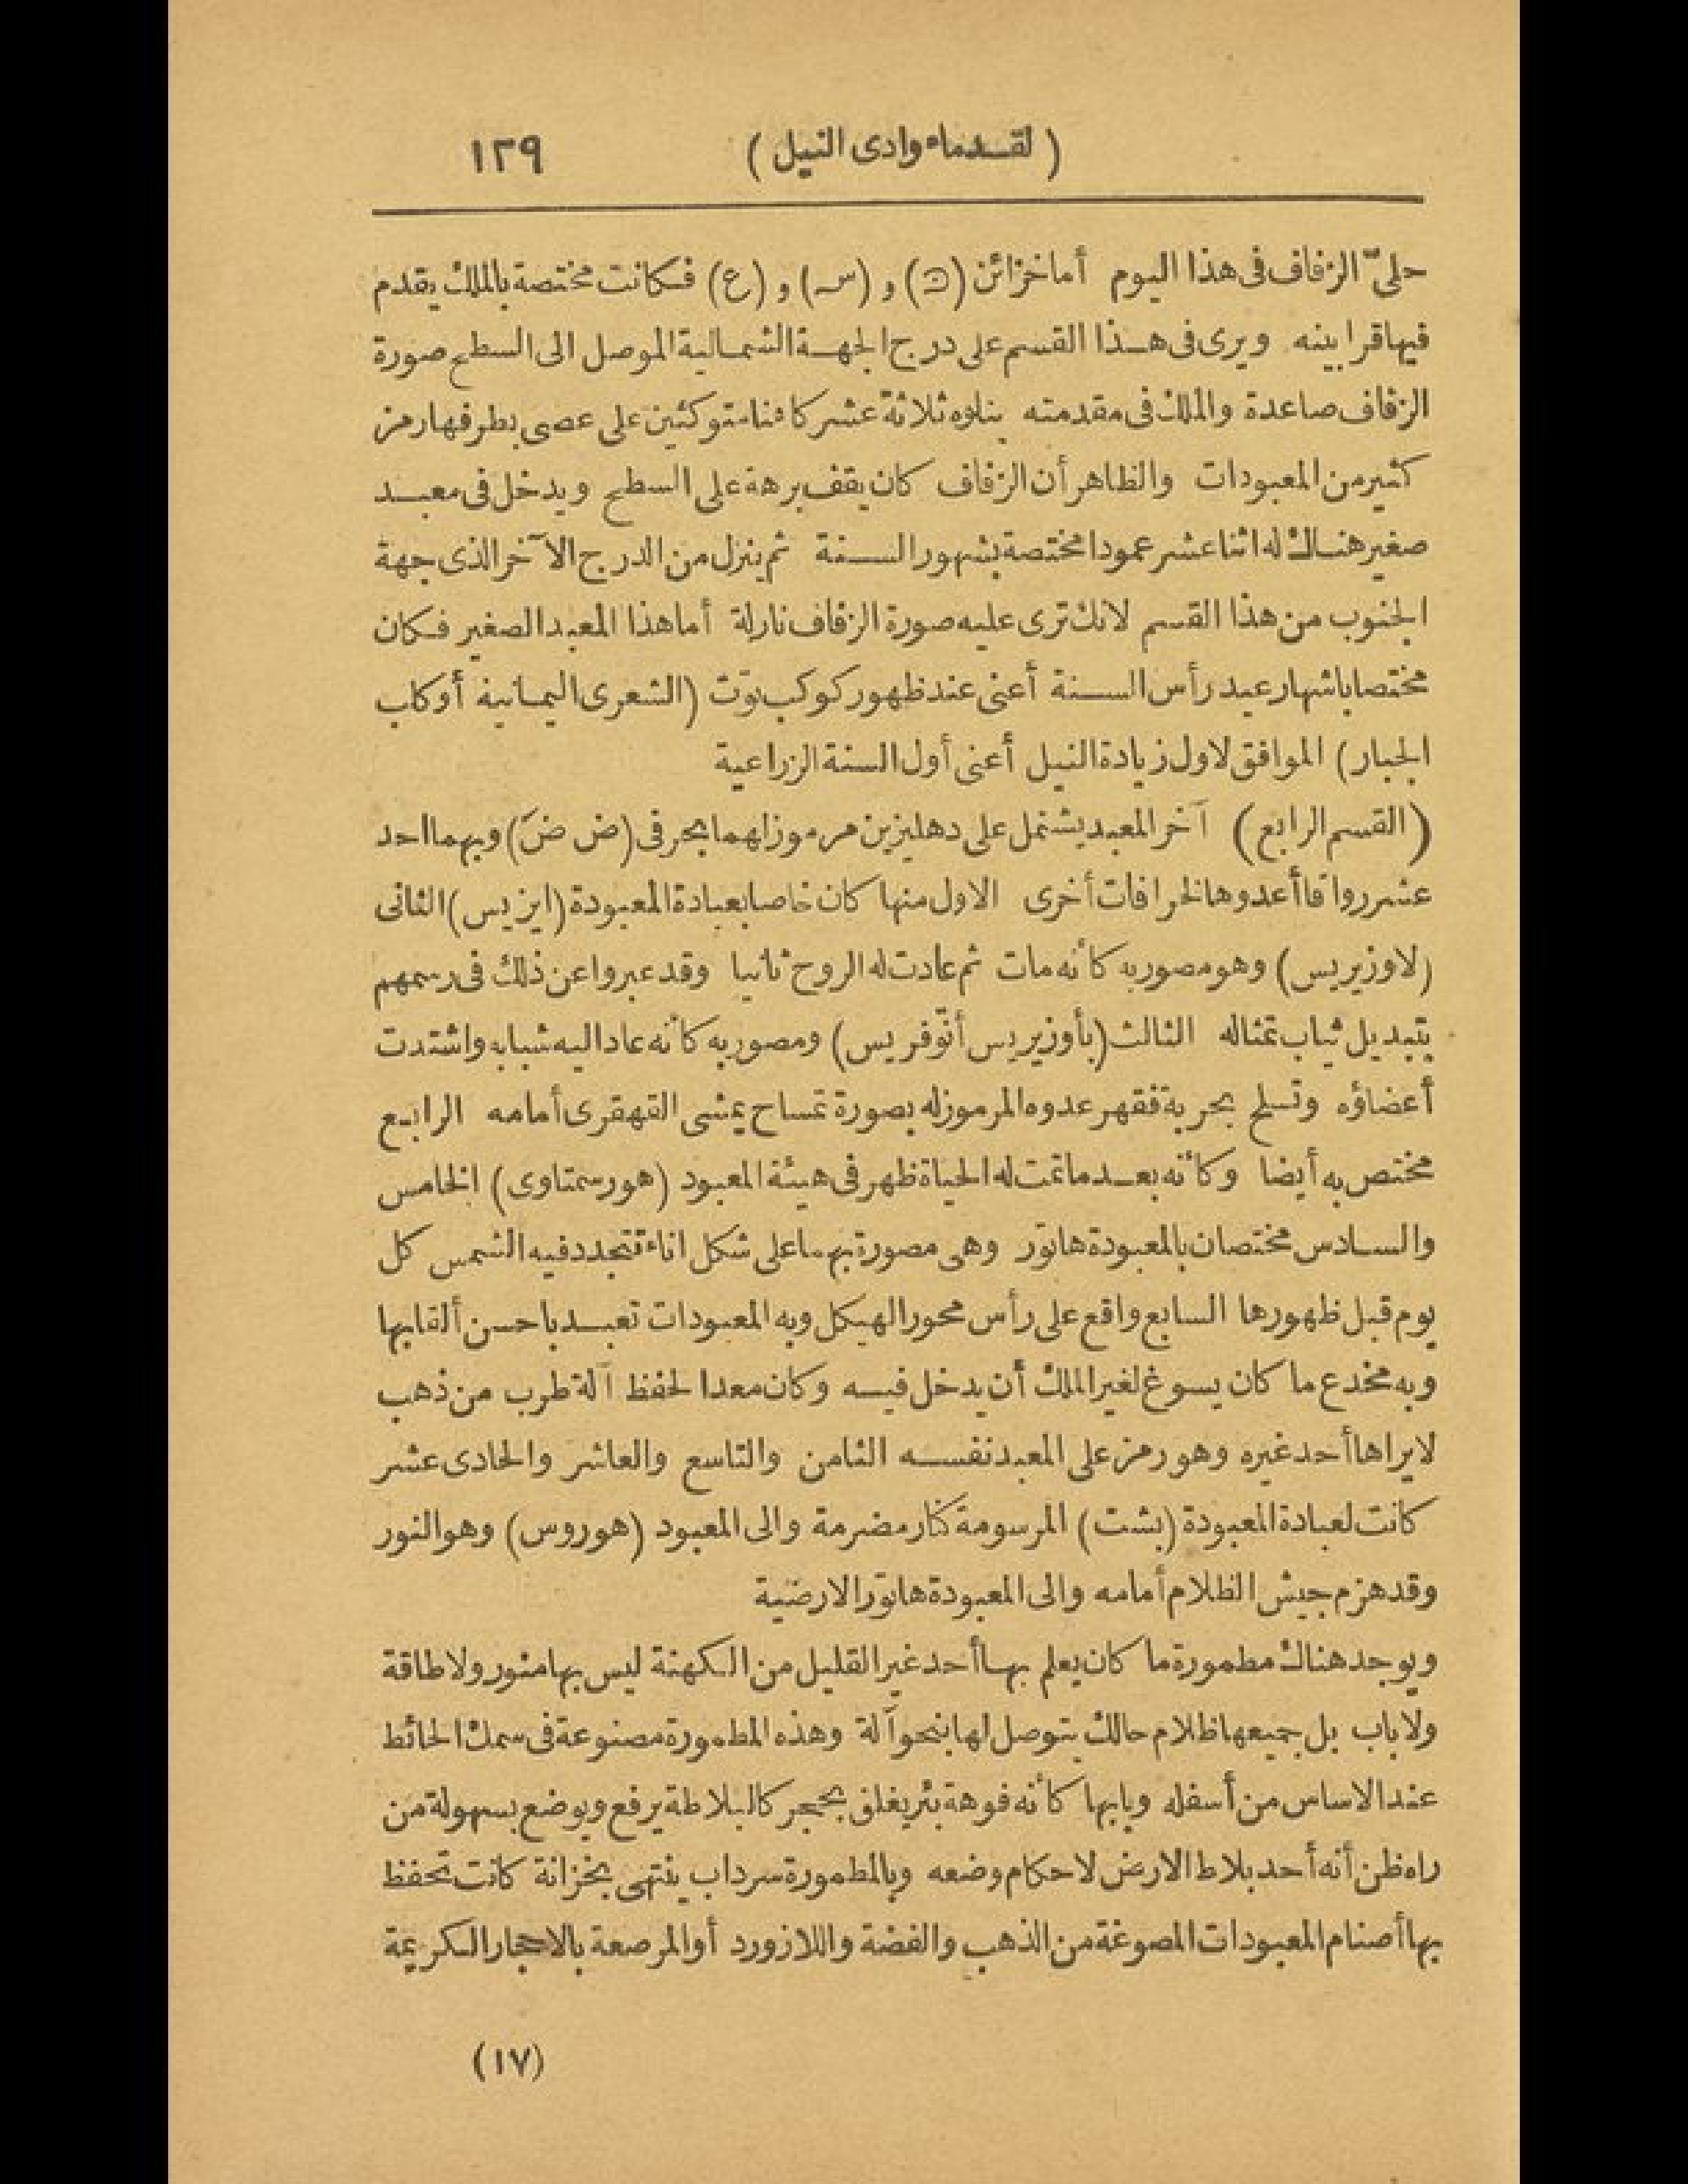 (لقدماء وادى النيل) ١٢٩
حلىّ الزفاف فى هذا اليوم أما خزائن () و (س) و (ع) فكانت مختصة بالملك يقدم
فيها قرابينه ويرى فى هذا القسم على درج الجهة الشمالية الموصل الى السطح صورة
الزفاف صاعدة والملك فى مقدمته يتلوه ثلاثة عشر كاهنا متوكئين على عصى بطرفها رمز
كثير من المعبودات والظاهر أن الزفاف كان يقف برهة على السطح ويدخل فى معبد
صغير هناك له اثنا عشر عمودا مختصة بشهور السنة ثم ينزل من الدرج الآخر الذى جهة
الجنوب من هذا القسم لانك ترى عليه صورة الزفاف نازلة أما هذا المعبد الصغير فكان
مختصا باشهار عيد رأس السنة أعنى عند ظهور كوكب توت (الشعرى اليمانية أو كلب
الجبار) الموافق لاول زيادة النيل أعنى أول السنة الزراعية
(القسم الرابع) آخر المعبد يشتمل على دهليزين مرموز لهما بحرفى (ض ضَ) وبهما احد
عشر رواقا أعدوها لخرافات أخرى الاول منها كان خاصا بعبادة المعبودة (ايزيس) الثانى
(لاوزيريس) وهو مصور به كأنه مات ثم عادت له الروح ثانيا وقد عبروا عن ذلك فى رسمهم
بتبديل ثياب تمثاله الثالث (بأوزيريس أنّوفريس) ومصور به كأنه عاد اليه شبابه واشتدت
أعضاؤه وتسلح بحربة فقهر عدوه المرموز له بصورة تمساح يمشى القهقرى أمامه الرابع
مختص به أيضا وكأنه بعد ما تمت له الحياة ظهر فى هيئة المعبود (هورسمتاوى) الخامس
والسادس مختصان بالمعبودة هاتور وهى مصورة بهما على شكل اناء تتجدد فيه الشمس كل
يوم قبل ظهورها السابع واقع على رأس محور الهيكل وبه المعبودات تعبد باحسن ألقابها
وبه مخدع ما كان يسوغ لغير الملك أن يدخل فيه وكان معدا لحفظ آلة طرب من ذهب
لايراها أحد غيره وهو رمز على المعبد نفسه الثامن والتاسع والعاشر والحادى عشر
كانت لعبادة المعبودة (بشت) المرسومة كنار مضرمة والى المعبود (هوروس) وهو النور
وقد هزم جيش الظلام أمامه والى المعبودة هاتور الارضية
ويوجد هناك مطمورة ما كان يعلم بها أحد غير القليل من الكهنة ليس بها منور ولا طاقة
ولا باب بل جميعها ظلام حالك يتوصل لها بنحو آلة وهذه المطمورة مصنوعة فى سمك الحائط
عند الاساس من أسفله وبابها كأنه فوهة بئر يغلق بحجر كالبلاطة يرفع ويوضع بسهولة من
راه ظن أنه أحد بلاط الارض لاحكام وضعه وبالمطمورة سرداب ينتهى بخزانة كانت تحفظ
بها أصنام المعبودات المصوغة من الذهب والفضة واللازورد أو المرصعة بالاحجار الكريمة
(١٧)